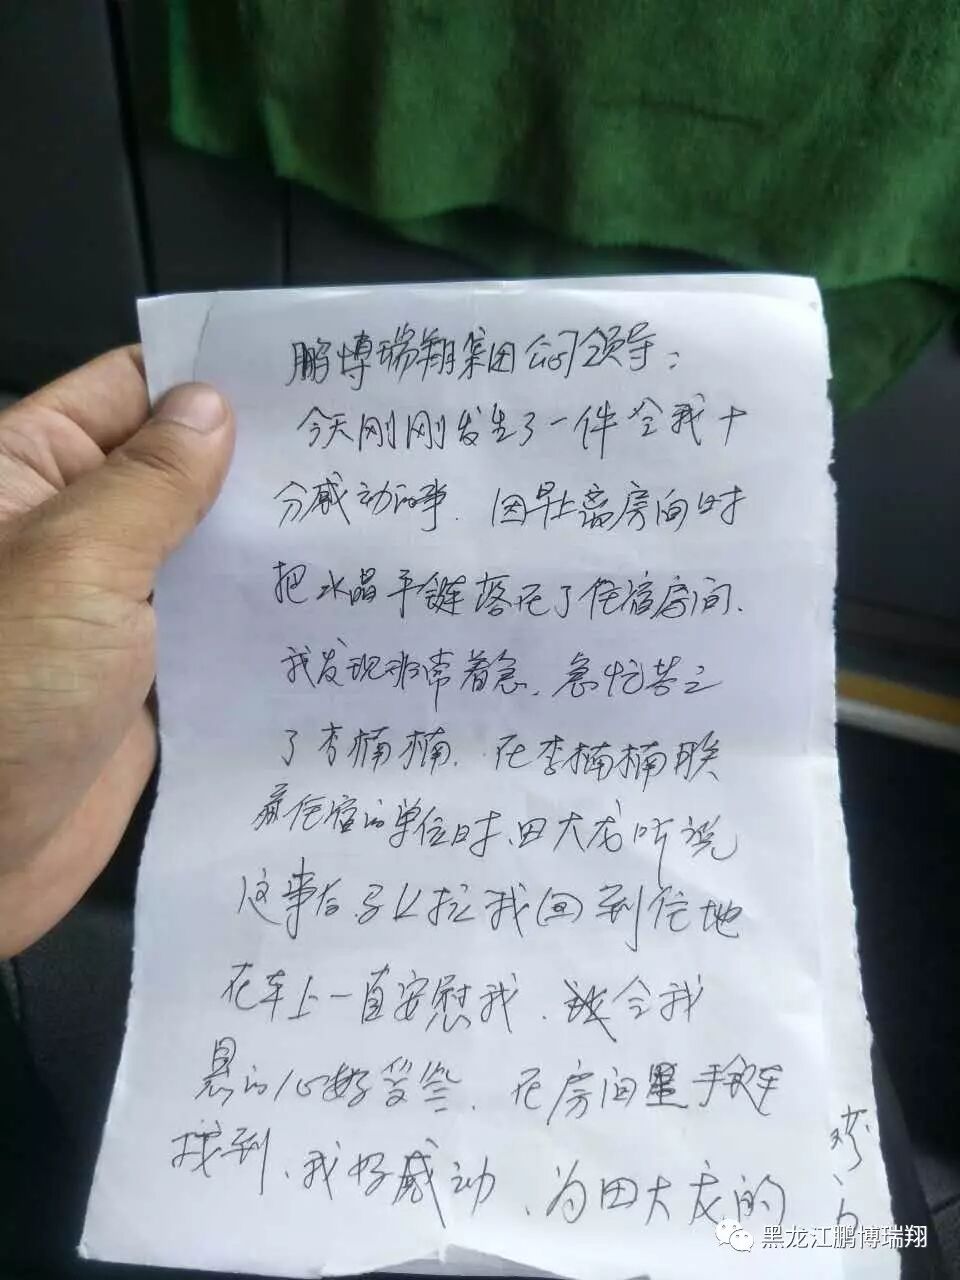 鹏博瑞翔集团公司领导：
今天刚刚发生了一件令我十
分感动的事.因早上离房间时
把水晶手链落在了住宿房间.
我发现非常着急.急忙告之
了李楠楠.在李楠楠联
系住宿的单位时.田大龙听说
这事后.马上拉我回到住地
在车上一直安慰我.令我
悬的心好受些.在房间里手链
找到.我好感动.为田大龙的
黑龙江鹏博瑞翔